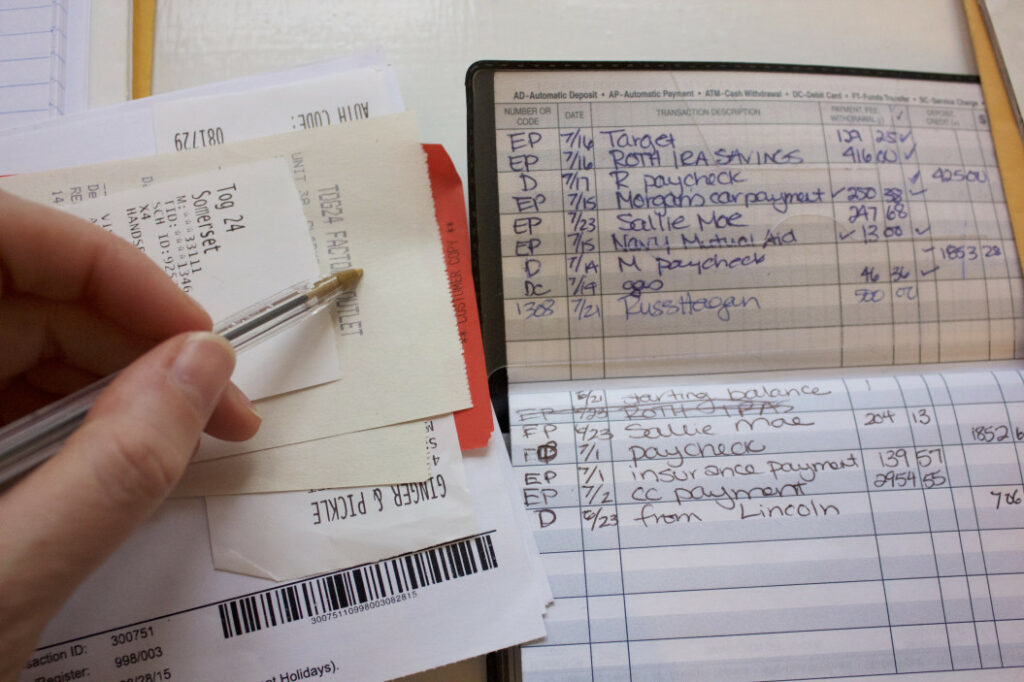 AUTH CODE:
081729
TOG24 FACTORY OUTLET
** CUSTOMER COPY **
Tog 24
Somerset
M:**33111
TID:****1346
SCH ID:925
X4
HANDSE
GINGER & PICKLE
300751109980030828​15
saction ID: 300751
Register: 998/003
/28/15
t Holidays).
AD-Automatic Deposit • AP-Automatic Payment • ATM-Cash Withdrawal • DC-Debit Card • FT-Funds Transfer • SC-Service Charge
NUMBER OR CODE DATE TRANSACTION DESCRIPTION PAYMENT, FEE, WITHDRAWAL (-) ✓ DEPOSIT, CREDIT (+) $
EP 7/16 Target 129 25 ✓
EP 7/16 ROTH IRA SAVINGS 416 00 ✓
D 7/17 R paycheck ✓ 425 00
EP 7/15 Morgan's car payment ✓ 250 38 ✓
EP 7/23 Sallie Mae 247 68
EP 7/15 Navy Mutual Aid ✓ 13 00 ✓
D M paycheck ✓ 1853 28
DC 7/19 gas 46 36 ✓
1308 7/21 Russ Hagan 500 00
5/21 starting balance
EP 6/23 ROTH IRAS
EP 6/23 Sallie Mae 204 13
D 7/1 paycheck 1852 6
EP 7/1 insurance payment 139 57
EP 7/2 cc payment 2954 55
D 6/23 from Lincoln 706